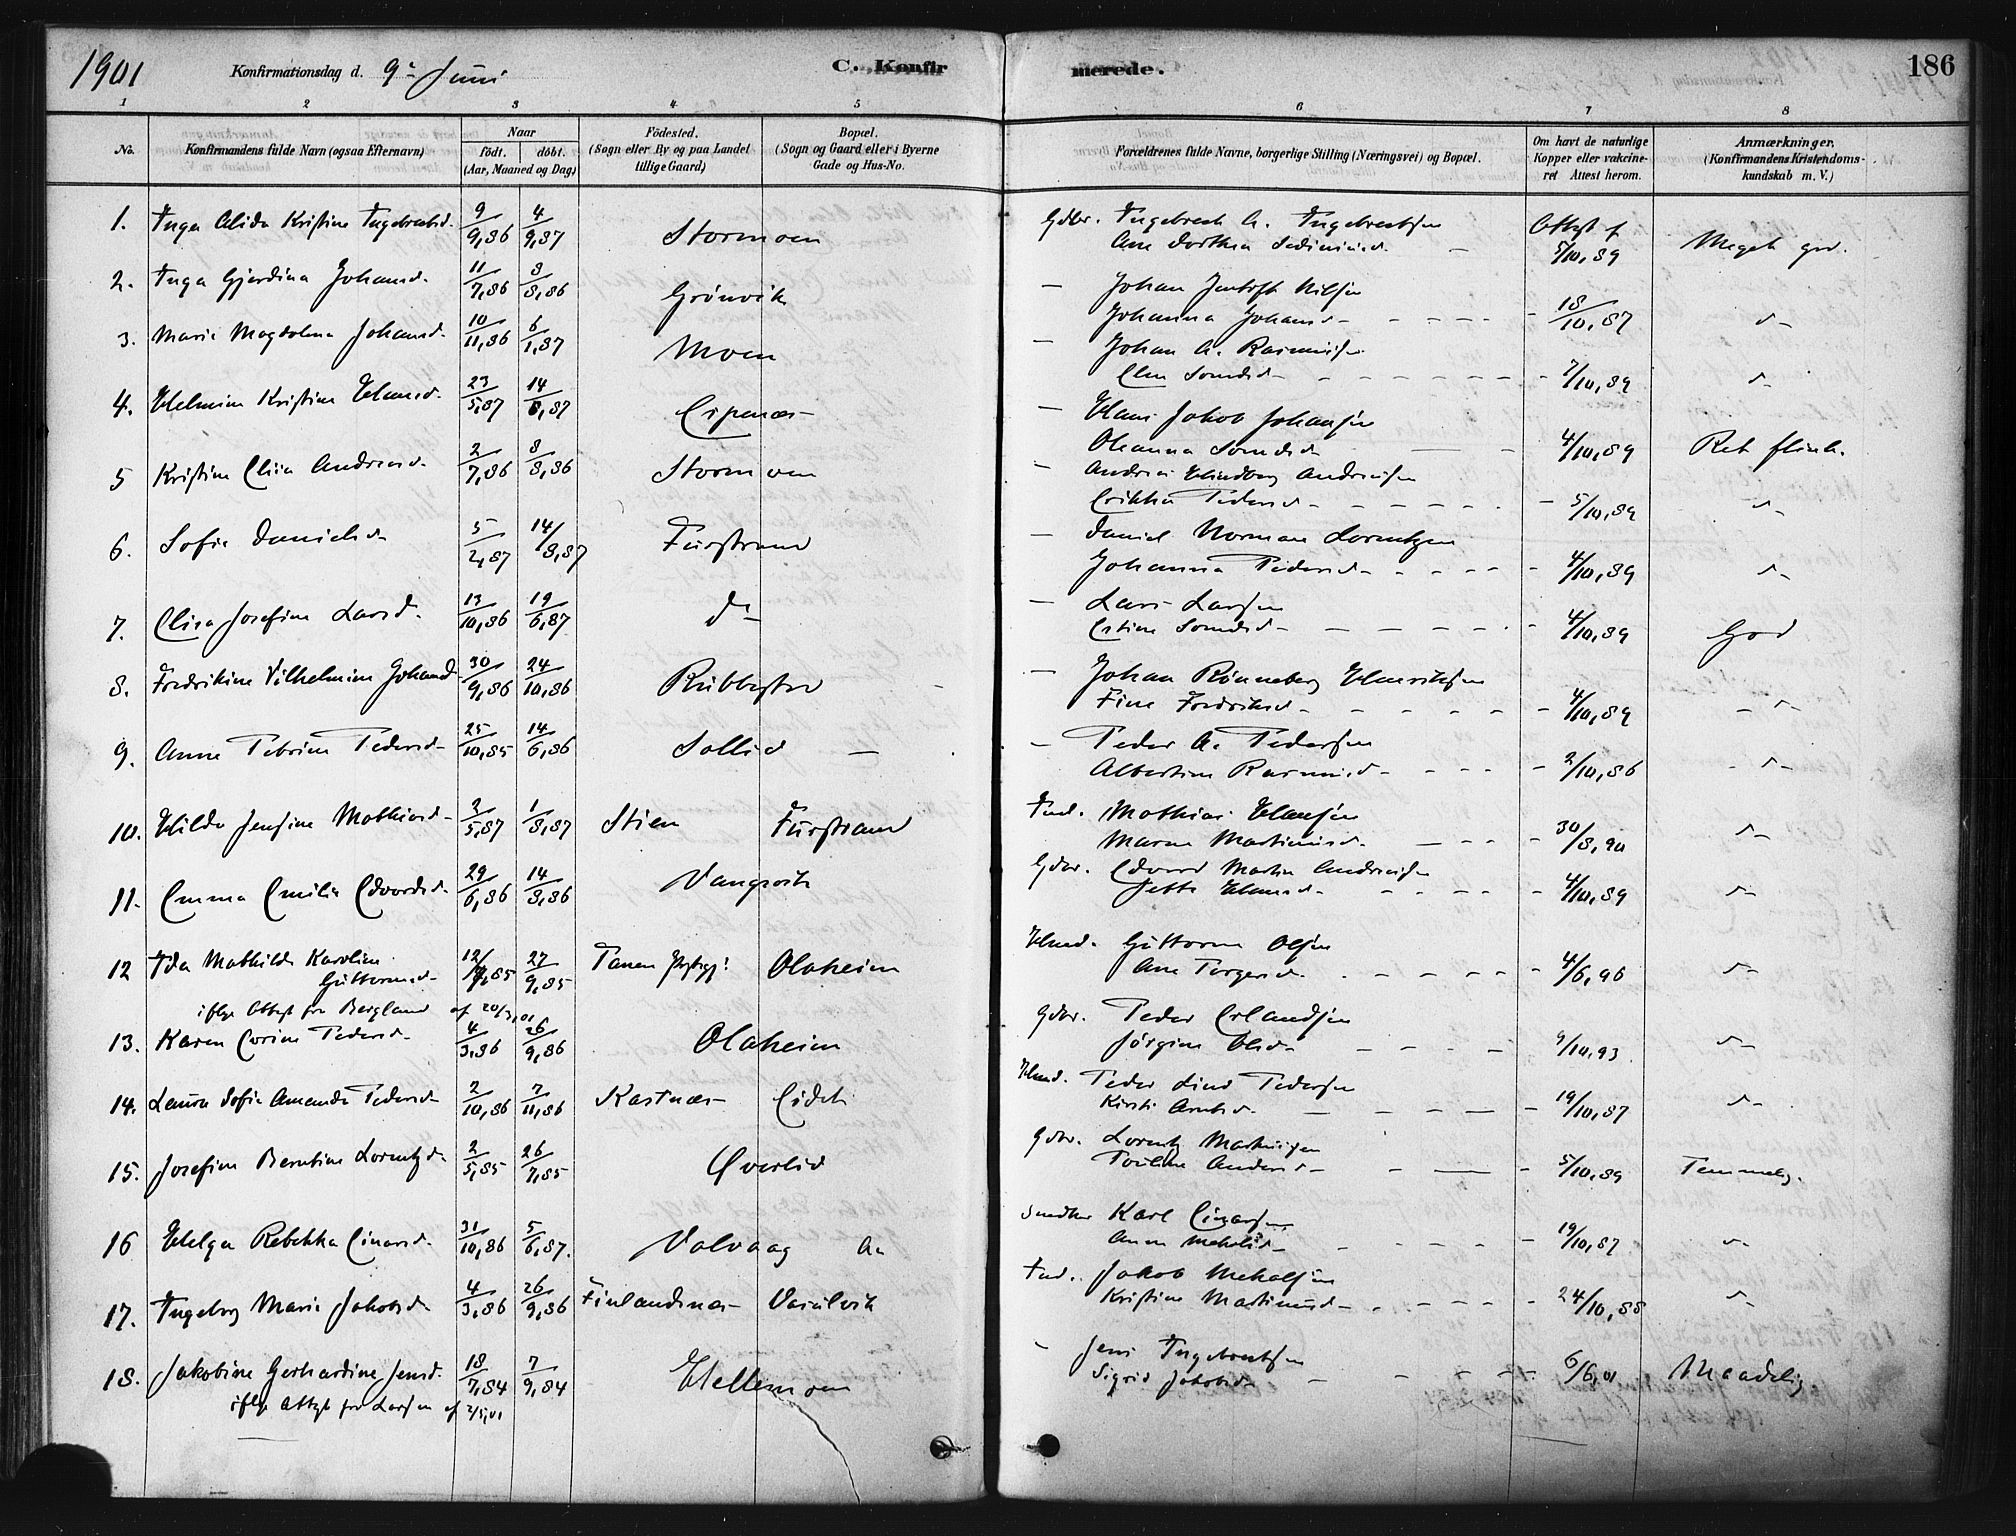 1901 Konfirmationsdag d. 9de Juni C. Konfirmerede. 186
1 2 3 4 5 6 7 8
No. Konfirmandens fulde Navn (ogsaa Efternavn) Naar födt. döbt. (Aar, Maaned og Dag) Födested. (Sogn eller By og paa Landet tillige Gaard) Bopæl. (Sogn og Gaard eller i Byerne Gade og Hus-No. Forældrenes fulde Navne, borgerlige Stilling (Næringsvei) og Bopæl. Om havt de naturlige Kopper eller vakcineret Attest herom. Anmærkninger. (Konfirmandens Kristendomskundskab m. V.)
1. Inga Alida Kristine Ingebrebtsd. 9/9,86 4/9,87 Stormoen Gdbr. Ingebregt A. Ingebregtsen
Ane Dorthea Sediniusd. Attest f 5/10,89 Meget god.
2. Inga Gjerdina Johansd. 11/7,86 8/8,86 Grönvik – Johan Jentoft Nilsen
Johanna Johansd – 18/10,87 d–
3. Marie Magdalena Johansd. 10/11,86 6/1,87 Moen – Johan A. Rasmussen
Elen Simonsd – 7/10,89 d–
4. Helmine Kristine Hansd. 23/5,87 14/8,87 Espenes – Hans Jakob Johansen
Oleanna Simonsd – 4/10,89 Ret flink.
5 Kristine Elisa Andreasd. 2/7,86 8/8,86 Stormoen – Andreas Hindberg Andreassen
Erikka Pedersd – 5/10,89 d–
6. Sofie Danielsd 5/2,87 14/8,87 Furstrand – Daniel Norman Lorentzen
Johanna Pedersd – 4/10,89 d–
7. Elisa Josefine Larsd. 13/10,86 19/6,87 d– – Lars Larsen
Estine Simonsd – 4/10,89 God
8. Fredrikine Vilhelmine Johansd 30/9,86 24/10,86 Rubbestad – Johan Rönneberg Henriksen
Fine Fredriksd – 4/10,89 – d–
9. Anne Petrine Pedersd – 25/10,85 14/6,86 Sollid – – Peder A. Pedersen
Albertine Rasmusd – 2/10,86 d–
10. Hilda Jensine Mathiasd – 3/5,87 1/8,87 Stien Furstrand Ind. Mathias Hansen
Maren Martinusd. – 30/8,90 d–
11. Emma Emilie Edvardsd 29/6,86 14/8,86 Vangsvik Gdbr. Edvard Martin Andreassen
Jette Hansd. – 4/10,89 d–
12 Ida Mathilde Karoline
Guttormsd – 12/7,85 27/9,85 Tanen Prstgj: Olaheim Hmd. Guttorm Olsen
Ane Torgersd. – 4/6,96 d–
iflge Attest fra Bergland af 20/3,01
13. Karen Corine Pedersd. 4/3,86 26/9,86 Olaheim Gdbr. Peder Erlandsen
Jörgine Olsd – 9/10,93 d–
14. Laura Sofie Amanda Pedersd 2/10,86 7/11,86 Kastnes Eidet Hmd. Peder Lind Pedersen
Kirsti Arntsd. – 19/10,87 d–
15. Josefine Berntine Lorentzd. 2/5,85 26/7,85 Överlid Gdbr. Lorentz Martinsen
Pauline Andersd – 5/10,89 Temmelig.
16 Helga Rebekka Einarsd. 31/10,86 5/6,87. Valvaag do Snedker Karl Einarsen
Anna Mekalsd – 19/10,87 d–
17. Ingeborg Marie Jakobsd 4/3,86 26/9,86 Finlandsnes Vasilvik Ind. Jakob Mekalsen
Kristine Martinusd – 24/10,88 d–
18. Jakobine Gerhardine Jensd. 18/7,84 7/9,84 Hellemoen – Jens Ingebretsen
Sigrid Jakobsd – 6/6,01 Maadelig
iflge Attest fra Larsen af 2/5,01